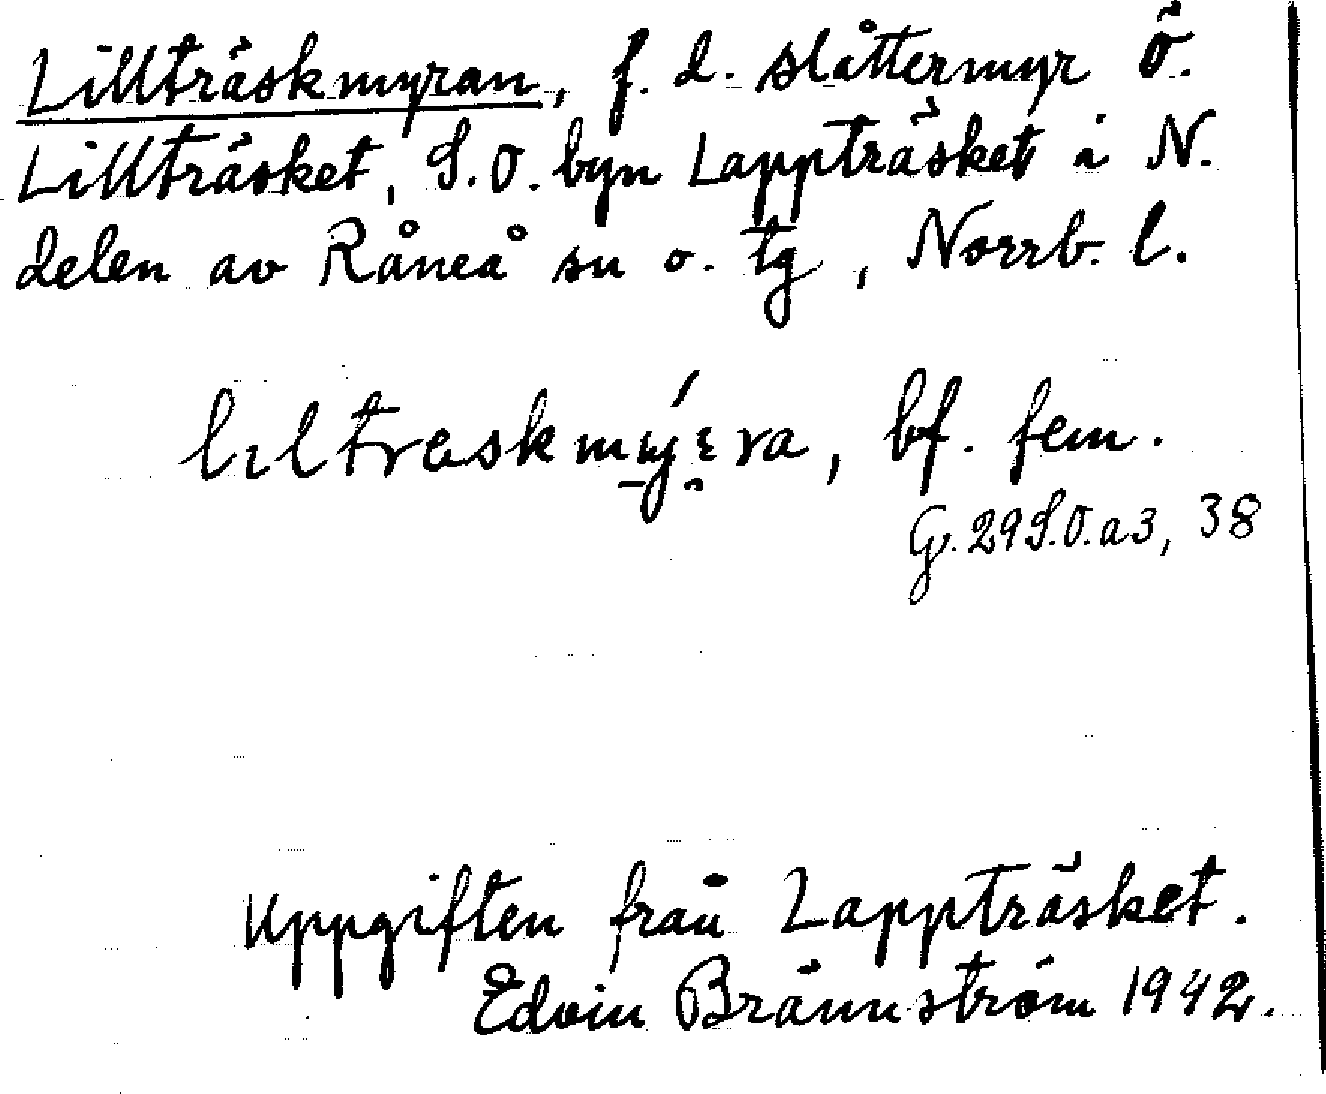 Lillträskmyran, f. d. slåttermyr Ö.
Lillträsket, S.O. byn Lappträsket i N.
delen av Råneå sn o. tg, Norrb. l.
bf. fem.
G. 29 S.O. a 3, 38
Uppgiften från Lappträsket.
Edvin Brännström 1942.